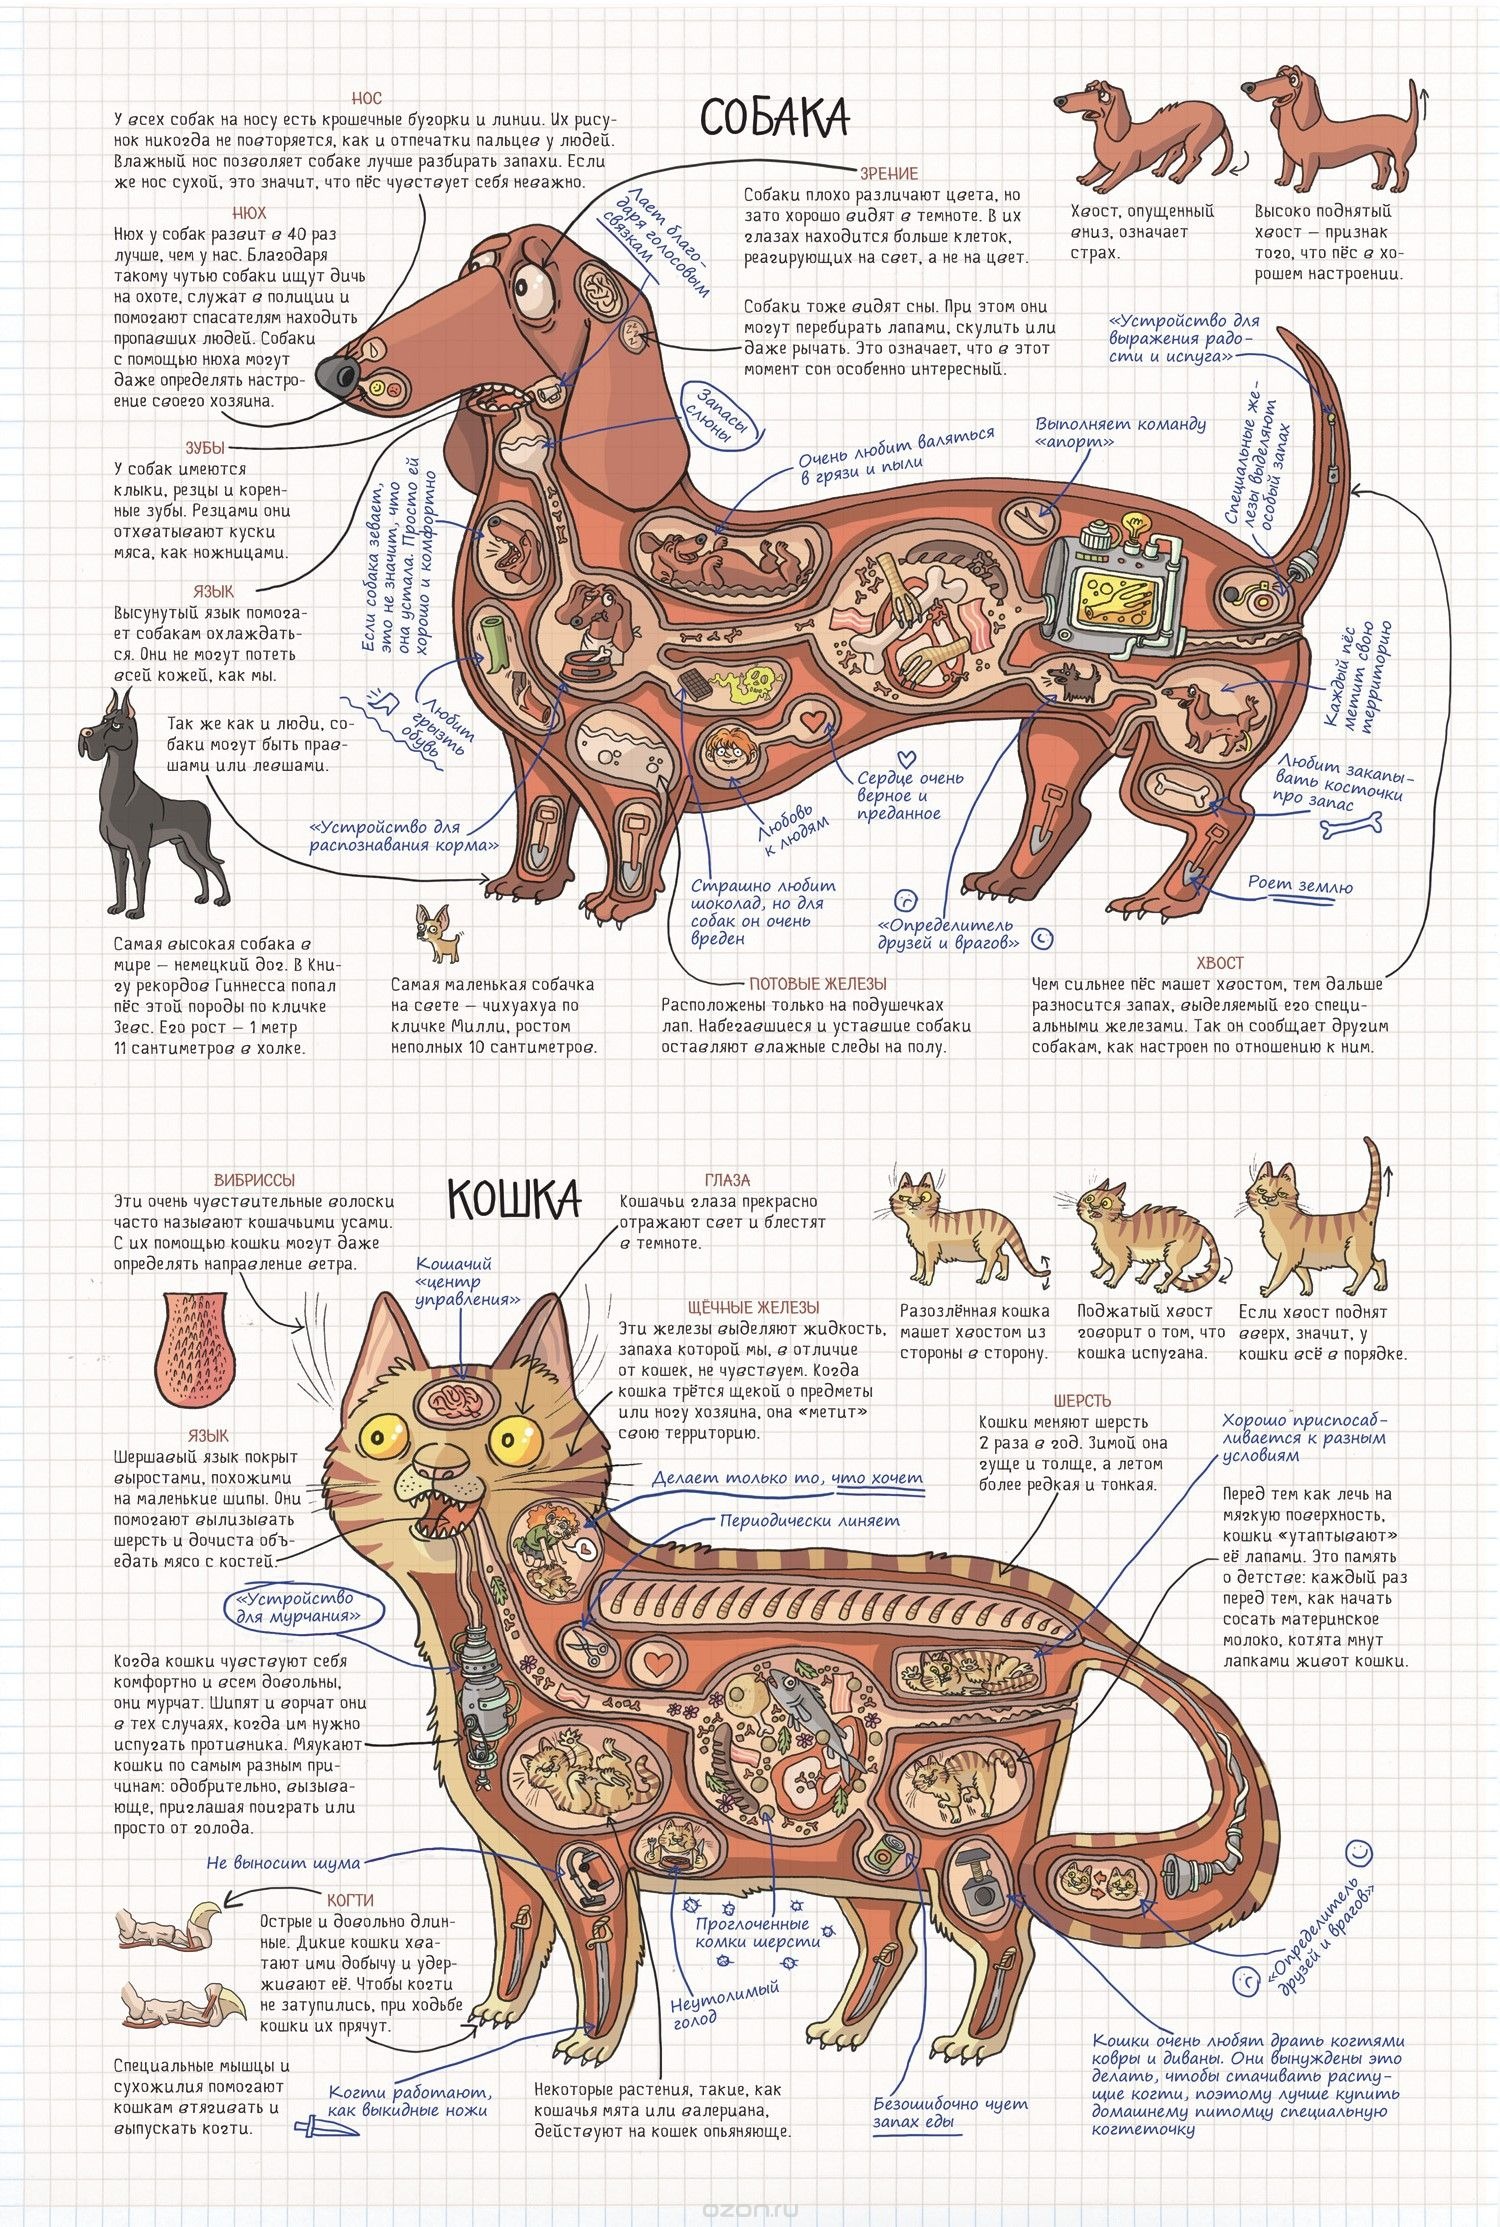 СОБАКА
НОС
У всех собак на носу есть крошечные бугорки и линии. Их рису-
нок никогда не повторяется, как и отпечатки пальцев у людей.
Влажный нос позволяет собаке лучше разбирать запахи. Если
же нос сухой, это значит, что пёс чувствует себя неважно.
НЮХ
Нюх у собак развит в 40 раз
лучше, чем у нас. Благодаря
такому чутью собаки ищут дичь
на охоте, служат в полиции и
помогают спасателям находить
пропавших людей. Собаки
с помощью нюха могут
даже определять настро-
ение своего хозяина.
ЗУБЫ
У собак имеются
клыки, резцы и корен-
ные зубы. Резцами они
отхватывают куски
мяса, как ножницами.
ЯЗЫК
Высунутый язык помога-
ет собакам охлаждать-
ся. Они не могут потеть
всей кожей, как мы.
Так же как и люди, со-
баки могут быть прав-
шами или левшами.
Лает благо-
даря голосовым
связкам
ЗРЕНИЕ
Собаки плохо различают цвета, но
зато хорошо видят в темноте. В их
глазах находится больше клеток,
реагирующих на свет, а не на цвет.
Собаки тоже видят сны. При этом они
могут перебирать лапами, скулить или
даже рычать. Это означает, что в этот
момент сон особенно интересный.
Хвост, опущенный
вниз, означает
страх.
Высоко поднятый
хвост — признак
того, что пёс в хо-
рошем настроении.
«Устройство для
выражения радо-
сти и испуга»
Запасы
слюны
Очень любит валяться
в грязи и пыли
Выполняет команду
«апорт»
Специальные же-
лезы выделяют
особый запах
Если собака зевает,
это не значит, что
она устала. Просто ей
хорошо и комфортно
Любит
грызть
обувь
«Устройство для
распознавания корма»
Каждый пёс
метит свою
территорию
Любит закапы-
вать косточки
про запас
Сердце очень
верное и
преданное
Любовь
к людям
Страшно любит
шоколад, но для
собак он очень
вреден
«Определитель
друзей и врагов»
Роет землю
Самая высокая собака в
мире — немецкий дог. В Кни-
гу рекордов Гиннесса попал
пёс этой породы по кличке
Зевс. Его рост — 1 метр
11 сантиметров в холке.
Самая маленькая собачка
на свете — чихуахуа по
кличке Милли, ростом
неполных 10 сантиметров.
ПОТОВЫЕ ЖЕЛЕЗЫ
Расположены только на подушечках
лап. Набегавшиеся и уставшие собаки
оставляют влажные следы на полу.
ХВОСТ
Чем сильнее пёс машет хвостом, тем дальше
разносится запах, выделяемый его специ-
альными железами. Так он сообщает другим
собакам, как настроен по отношению к ним.
КОШКА
ВИБРИССЫ
Эти очень чувствительные волоски
часто называют кошачьими усами.
С их помощью кошки могут даже
определять направление ветра.
Кошачий
«центр
управления»
ГЛАЗА
Кошачьи глаза прекрасно
отражают свет и блестят
в темноте.
ЩЁЧНЫЕ ЖЕЛЕЗЫ
Эти железы выделяют жидкость,
запаха которой мы, в отличие
от кошек, не чувствуем. Когда
кошка трётся щекой о предметы
или ногу хозяина, она «метит»
свою территорию.
Разозлённая кошка
машет хвостом из
стороны в сторону.
Поджатый хвост
говорит о том, что
кошка испугана.
Если хвост поднят
вверх, значит, у
кошки всё в порядке.
ЯЗЫК
Шершавый язык покрыт
выростами, похожими
на маленькие шипы. Они
помогают вылизывать
шерсть и дочиста объ-
едать мясо с костей.
Делает только то, что хочет
Периодически линяет
ШЕРСТЬ
Кошки меняют шерсть
2 раза в год. Зимой она
гуще и толще, а летом
более редкая и тонкая.
Хорошо приспосаб-
ливается к разным
условиям
Перед тем как лечь на
мягкую поверхность,
кошки «утаптывают»
её лапами. Это память
о детстве: каждый раз
перед тем, как начать
сосать материнское
молоко, котята мнут
лапками живот кошки.
«Устройство
для мурчания»
Когда кошки чувствуют себя
комфортно и всем довольны,
они мурчат. Шипят и ворчат они
в тех случаях, когда им нужно
испугать противника. Мяукают
кошки по самым разным при-
чинам: одобрительно, вызыва-
юще, приглашая поиграть или
просто от голода.
Не выносит шума
КОГТИ
Острые и довольно длин-
ные. Дикие кошки хва-
тают ими добычу и удер-
живают её. Чтобы когти
не затупились, при ходьбе
кошки их прячут.
Специальные мышцы и
сухожилия помогают
кошкам втягивать и
выпускать когти.
Когти работают,
как выкидные ножи
Проглоченные
комки шерсти
Неутолимый
голод
Некоторые растения, такие, как
кошачья мята или валериана,
действуют на кошек опьяняюще.
Безошибочно чует
запах еды
«Определитель
друзей и врагов»
Кошки очень любят драть когтями
ковры и диваны. Они вынуждены это
делать, чтобы стачивать расту-
щие когти, поэтому лучше купить
домашнему питомцу специальную
когтеточку
ozon.ru